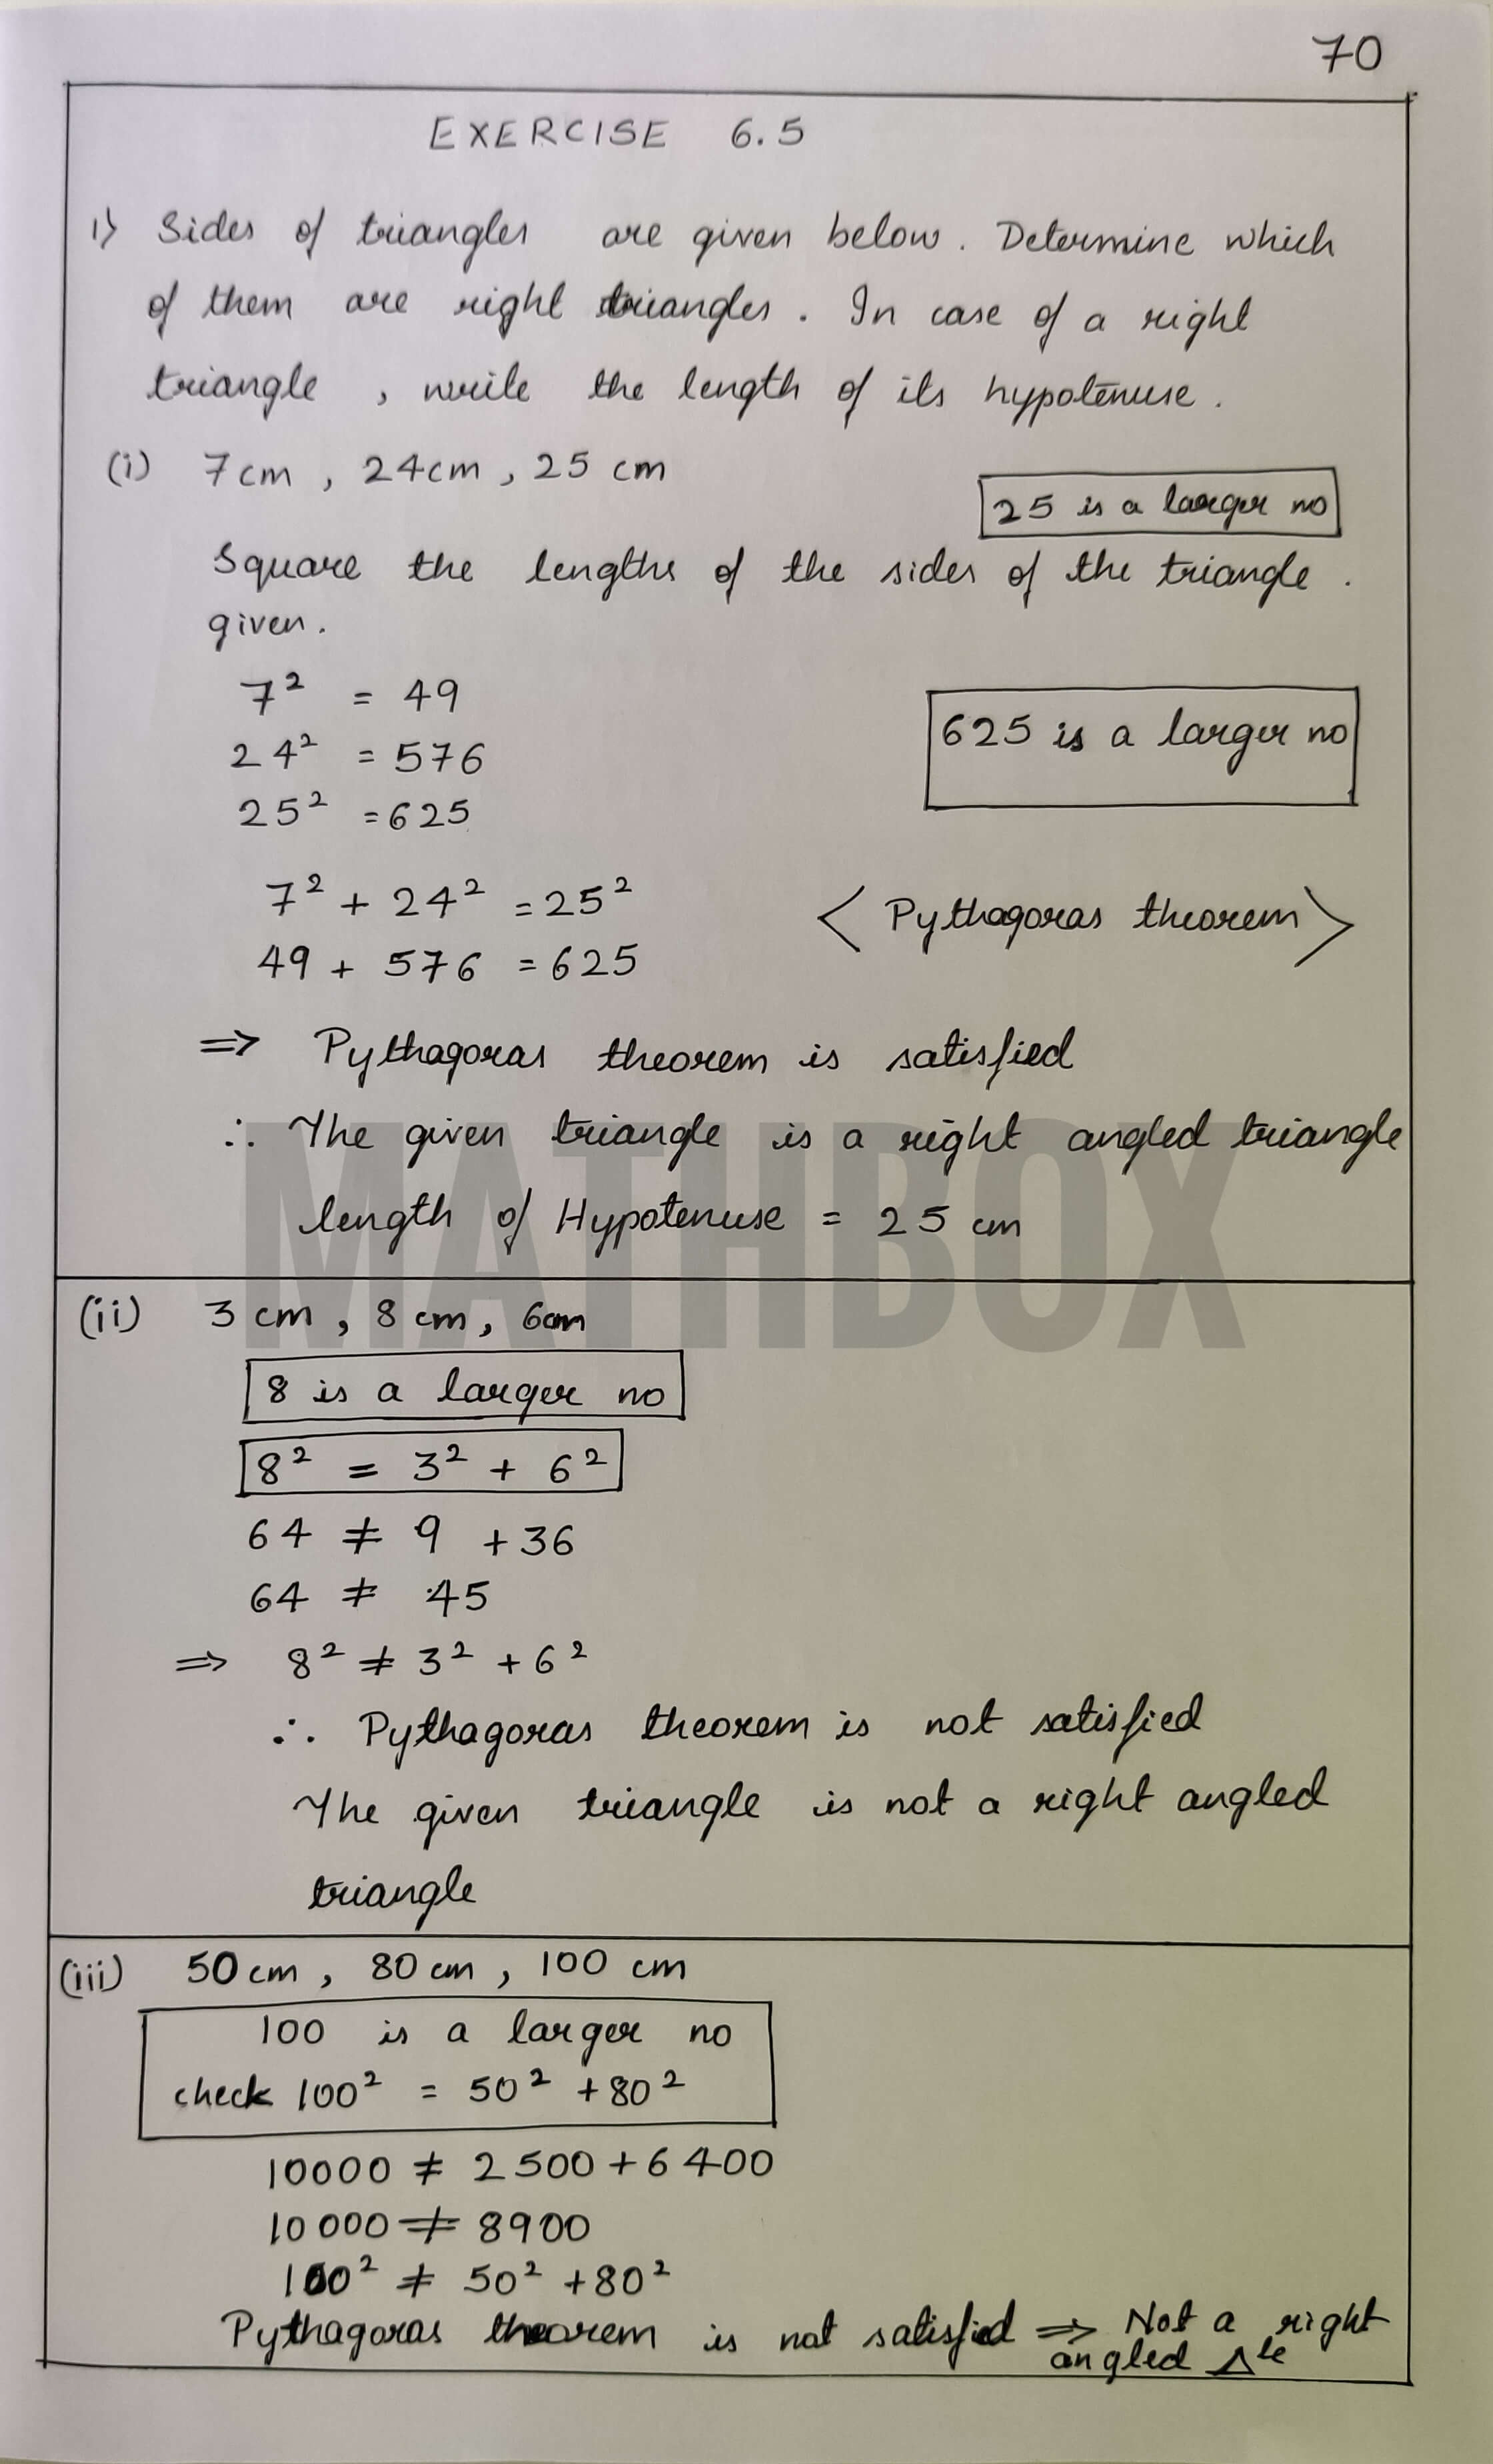 70
EXERCISE 6.5
1) Sides of triangles are given below. Determine which
of them are right triangles. In case of a right
triangle, write the length of its hypotenuse.
(i) 7cm, 24cm, 25 cm
25 is a larger no
Square the lengths of the sides of the triangle.
given.
7² = 49
24² = 576
25² = 625
625 is a larger no
7² + 24² = 25²
< Pythagoras theorem >
49 + 576 = 625
⇒ Pythagoras theorem is satisfied
∴ The given triangle is a right angled triangle
length of Hypotenuse = 25 cm
MATHBOX
(ii) 3 cm, 8 cm, 6cm
8 is a larger no
8² = 3² + 6²
64 ≠ 9 + 36
64 ≠ 45
⇒ 8² ≠ 3² + 6²
∴ Pythagoras theorem is not satisfied
The given triangle is not a right angled
triangle
(iii) 50cm, 80cm, 100 cm
100 is a larger no
check 100² = 50² + 80²
10000 ≠ 2500 + 6400
10000 ≠ 8900
100² ≠ 50² + 80²
Pythagoras theorem is not satisfied ⇒ Not a right
angled Δle